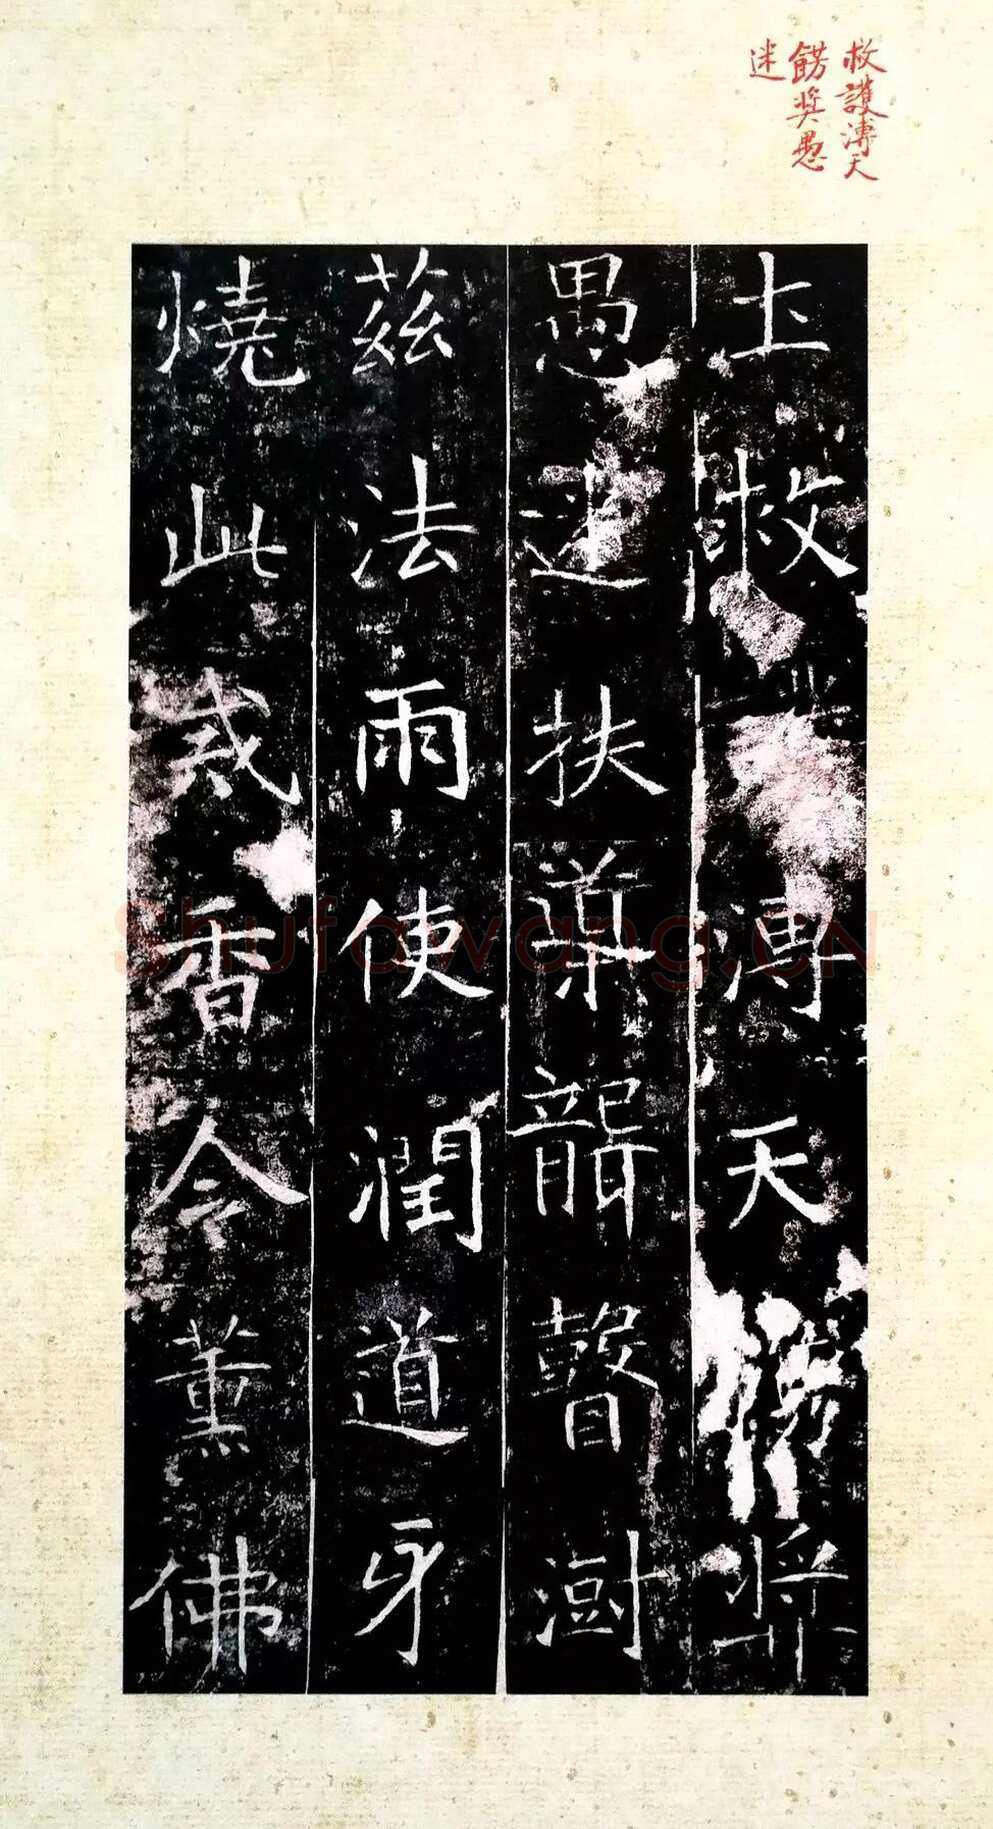 救護溥天
餝奬愚
迷
土救護溥天餝奬
愚迷扶導聾瞽澍
茲法雨使潤道牙
燒此戒香令薰佛
Shufawang.CN